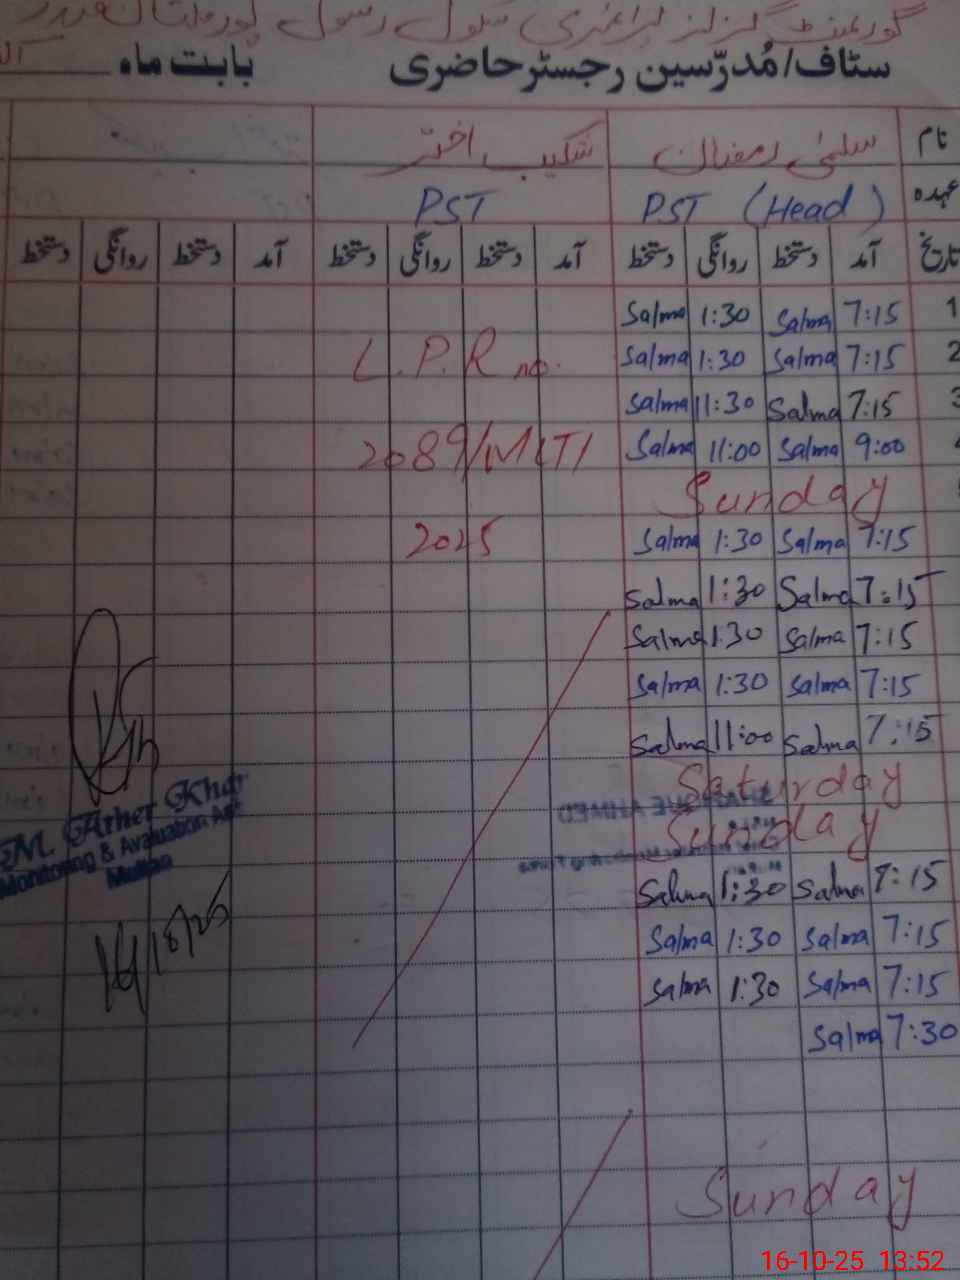 گورنمنٹ گرلز پرائمری سکول رسول پور ملتان صدر
سٹاف/مُدرّسین رجسٹر حاضری بابت ماہ
نام سلمیٰ رمضان شکیب اختر
عہدہ PST (Head) PST
تاریخ آمد دستخط روانگی دستخط آمد دستخط روانگی دستخط آمد دستخط روانگی دستخط
1 7:15 Salma 1:30 Salma
2 7:15 Salma 1:30 Salma L.P.R no.
3 7:15 Salma 11:30 Salma
4 9:00 Salma 11:00 Salma 2089/MLTI
Sunday
7:15 Salma 1:30 Salma 2025
7:15 Salma 1:30 Salma
7:15 Salma 1:30 Salma
7:15 Salma 1:30 Salma
7:15 Salma 11:00 Salma
Saturday
Sunday
7:15 Salma 1:30 Salma
7:15 Salma 1:30 Salma
7:15 Salma 1:30 Salma
7:30 Salma
Sunday
M. Ather Khan
Monitoring & Evaluation
Multan
16-10-25 13:52